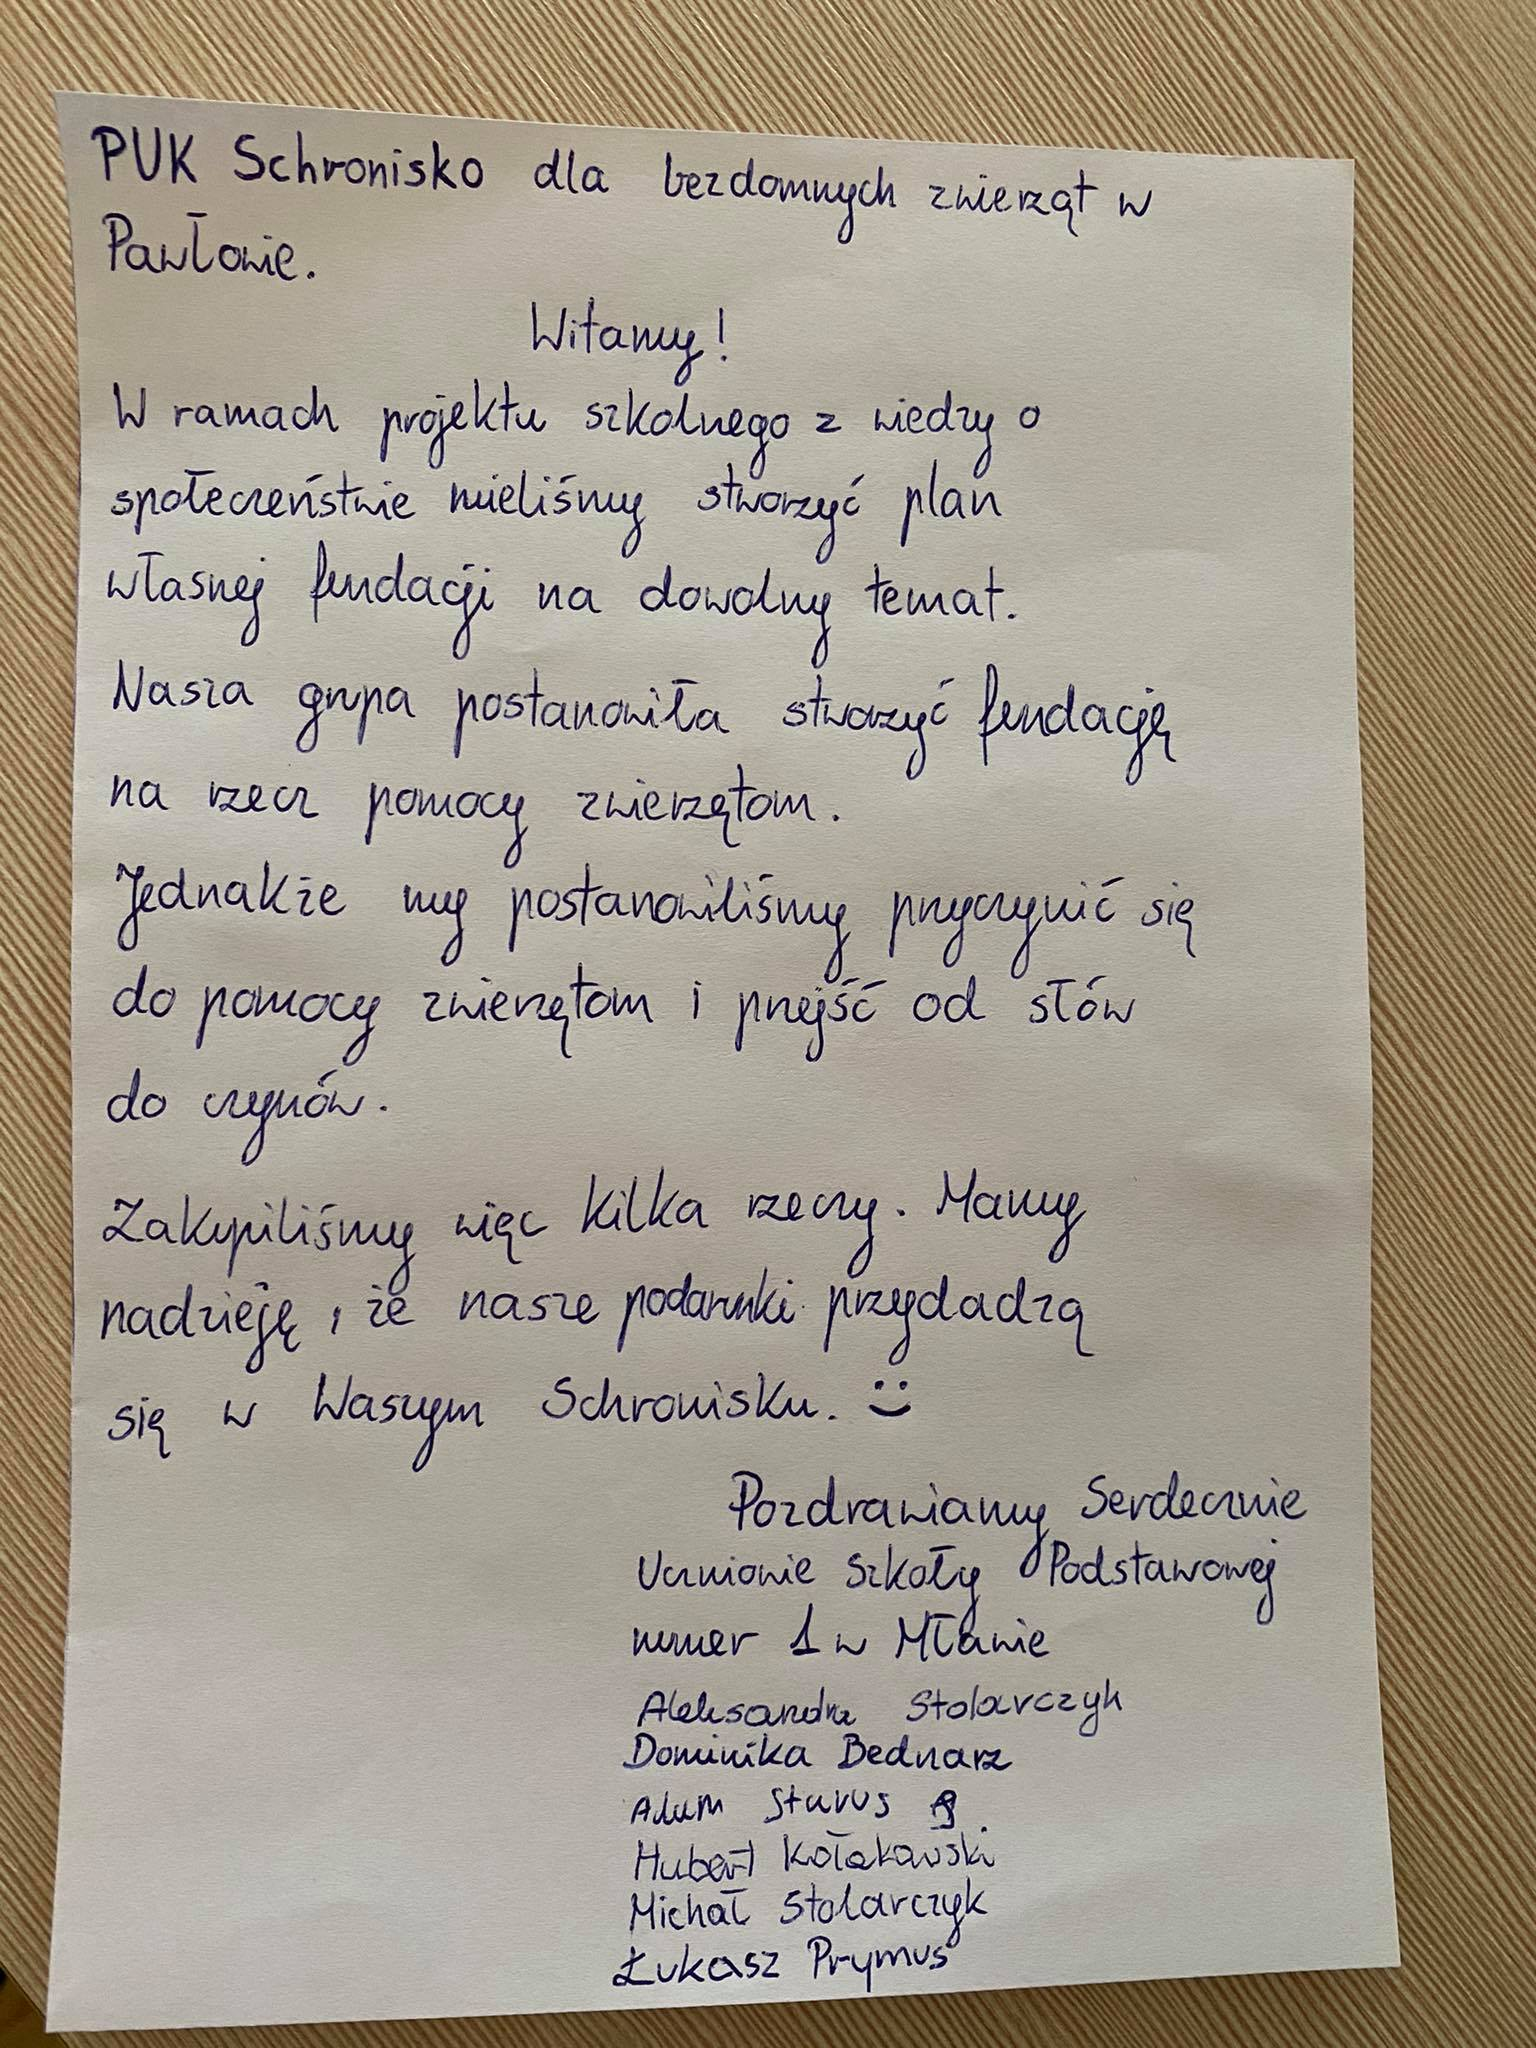 PUK Schronisko dla bezdomnych zwierząt w
Pawłowie.
Witamy!
W ramach projektu szkolnego z wiedzy o
społeczeństwie mieliśmy stworzyć plan
własnej fundacji na dowolny temat.
Nasza grupa postanowiła stworzyć fundację
na rzecz pomocy zwierzętom.
Jednakże my postanowiliśmy przyczynić się
do pomocy zwierzętom i przejść od słów
do czynów.
Zakupiliśmy więc kilka rzeczy. Mamy
nadzieję, że nasze podarunki przydadzą
się w Waszym Schronisku. :)
Pozdrawiamy Serdecznie
Uczniowie Szkoły Podstawowej
numer 1 w Mławie
Aleksandra Stolarczyk
Dominika Bednarz
Adam
Hubert Kołakowski
Michał Stolarczyk
Łukasz Prymus